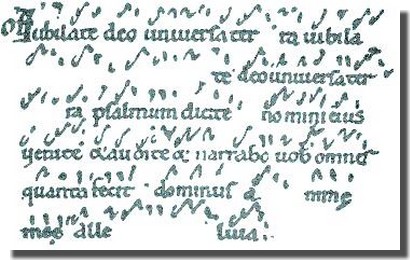 Of Iubilate deo uniuersa ter ra iubila
te deo uniuersa ter
ra psalmum dicite nomini eius
uenite & audite & narrabo uobis omnes
quanta fecit dominus a nime
meę alle luia.